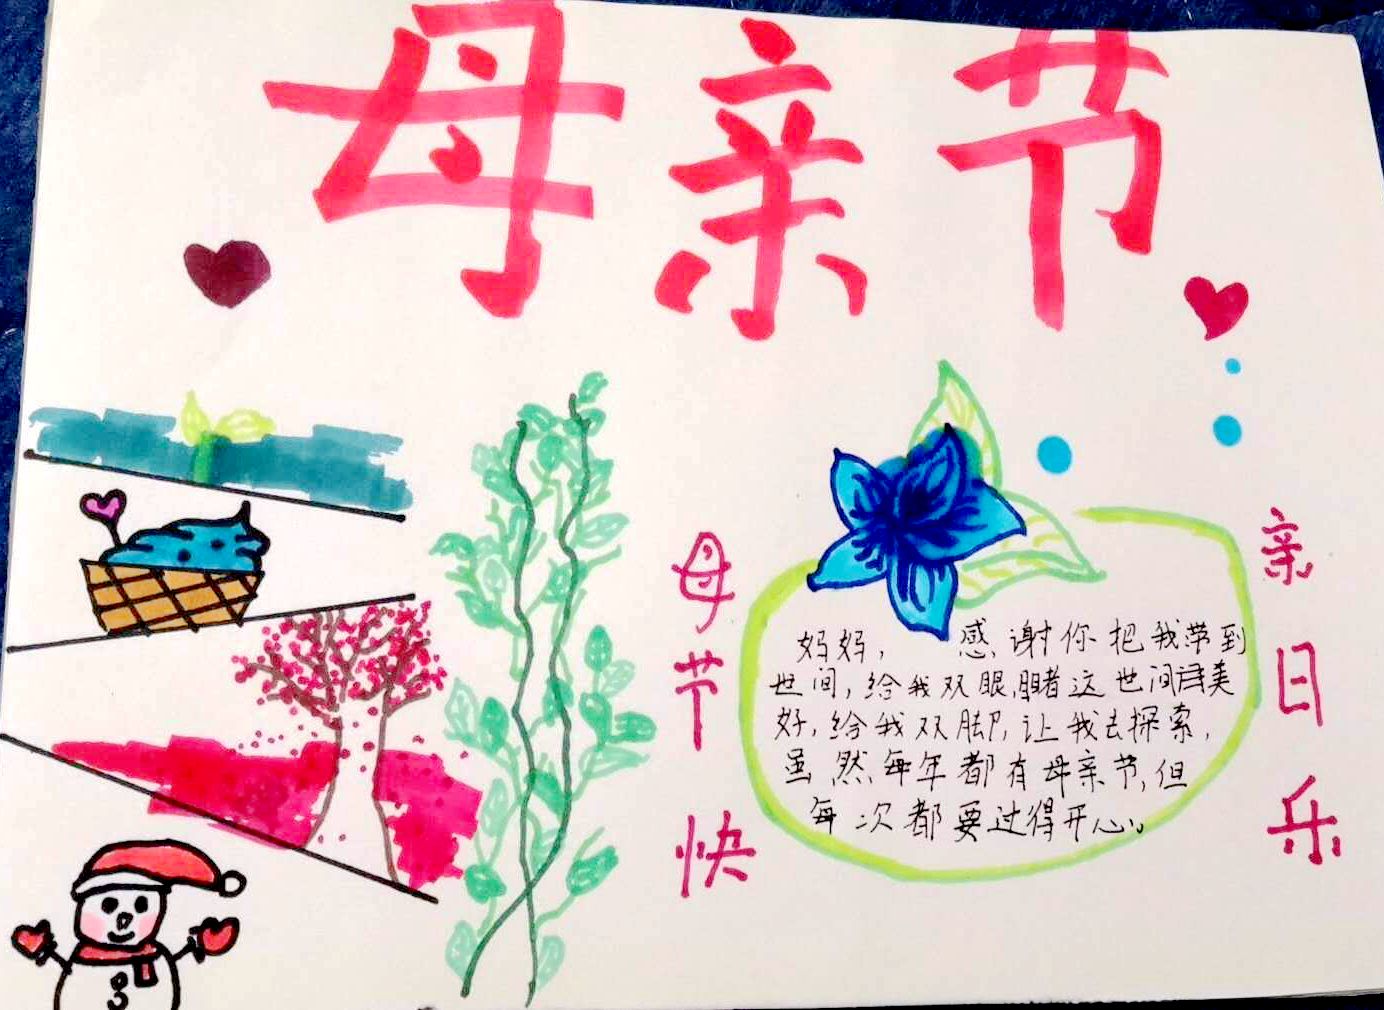 母亲节
母 亲
节 日
快 乐
妈妈，感谢你把我带到
世间，给我双眼，睹这世间诸美
好，给我双脚，让我去探索，
虽然每年都有母亲节，但
每次都要过得开心。